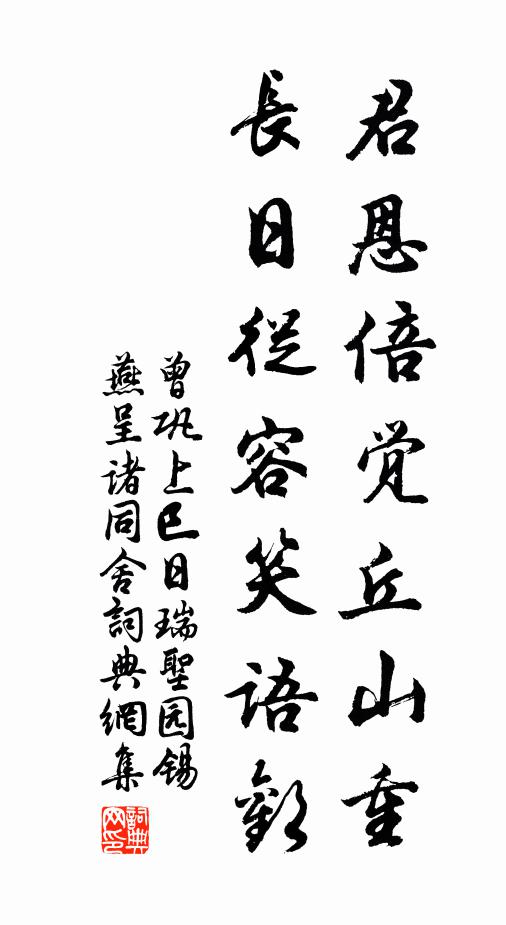 君恩倍觉丘山重
長日從容笑语歡
曾巩上巳日瑞聖园锡
燕呈诸同舍詞典網集
詞典网印